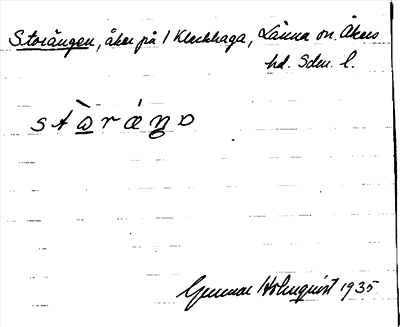 Storängen, åker på 1 Kleckhaga, Länna sn. Åkers
hd. Sdm. l.
stàráŋo
Gunnar Holmquist 1935